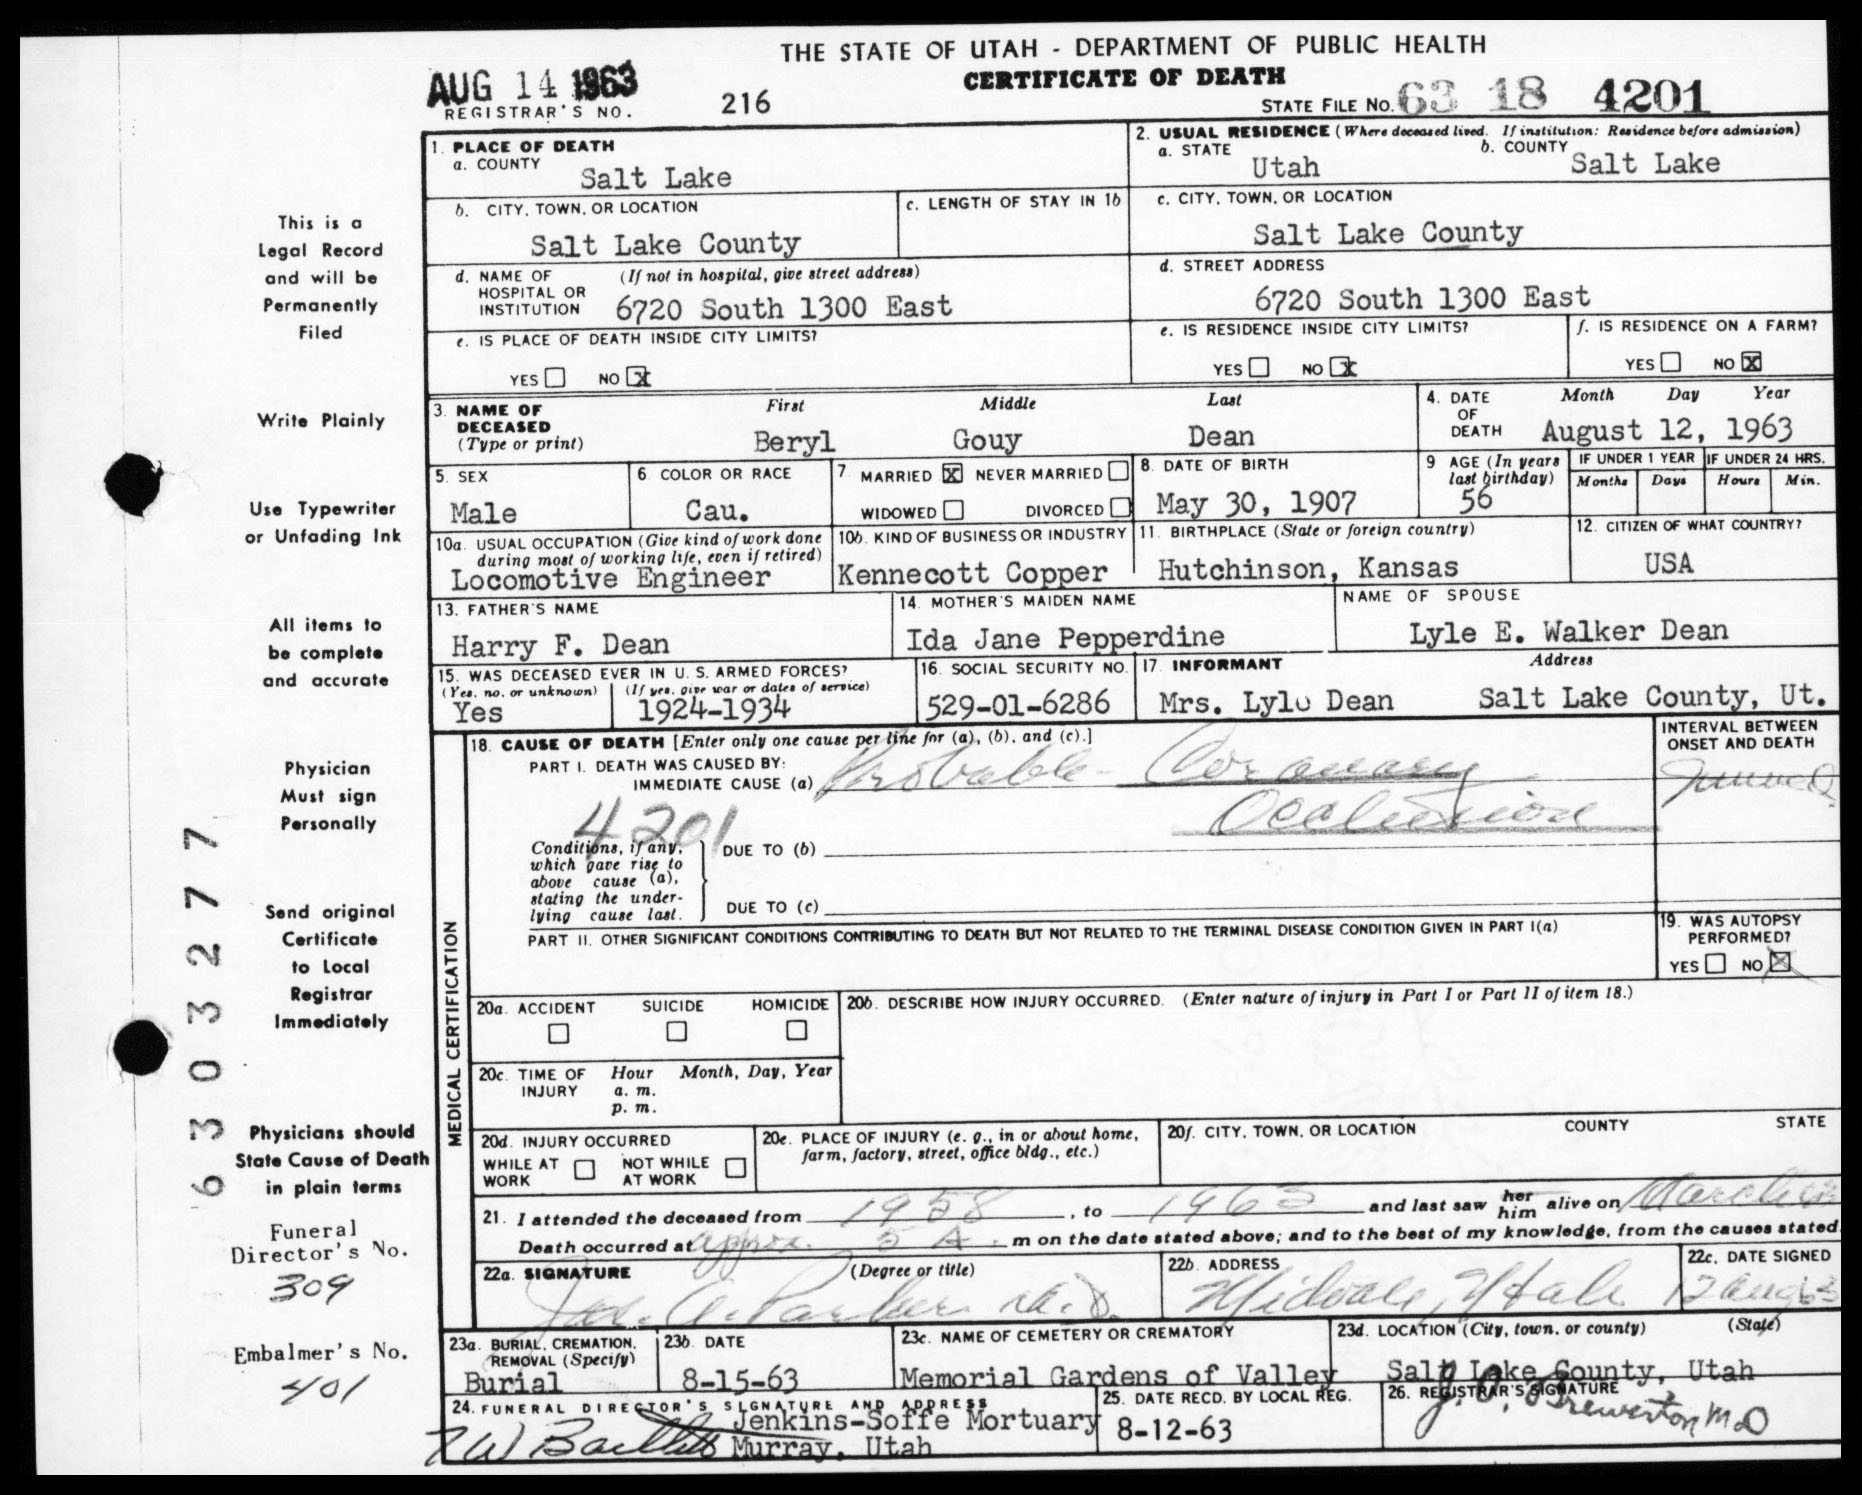 THE STATE OF UTAH - DEPARTMENT OF PUBLIC HEALTH
CERTIFICATE OF DEATH
AUG 14 1963
REGISTRAR'S NO. 216
STATE FILE NO. 63 18 4201
1. PLACE OF DEATH
a. COUNTY
Salt Lake
2. USUAL RESIDENCE (Where deceased lived. If institution: Residence before admission)
a. STATE Utah b. COUNTY Salt Lake
b. CITY, TOWN, OR LOCATION
Salt Lake County
c. LENGTH OF STAY IN 1b
c. CITY, TOWN, OR LOCATION
Salt Lake County
d. NAME OF HOSPITAL OR INSTITUTION (If not in hospital, give street address)
6720 South 1300 East
d. STREET ADDRESS
6720 South 1300 East
e. IS PLACE OF DEATH INSIDE CITY LIMITS?
YES NO X
e. IS RESIDENCE INSIDE CITY LIMITS?
YES NO X
f. IS RESIDENCE ON A FARM?
YES NO X
3. NAME OF DECEASED (Type or print)
First Middle Last
Beryl Gouy Dean
4. DATE OF DEATH Month Day Year
August 12, 1963
5. SEX
Male
6 COLOR OR RACE
Cau.
7 MARRIED X NEVER MARRIED
WIDOWED DIVORCED
8. DATE OF BIRTH
May 30, 1907
9 AGE (In years last birthday)
56
IF UNDER 1 YEAR
Months Days
IF UNDER 24 HRS.
Hours Min.
10a. USUAL OCCUPATION (Give kind of work done during most of working life, even if retired)
Locomotive Engineer
10b. KIND OF BUSINESS OR INDUSTRY
Kennecott Copper
11. BIRTHPLACE (State or foreign country)
Hutchinson, Kansas
12. CITIZEN OF WHAT COUNTRY?
USA
13. FATHER'S NAME
Harry F. Dean
14. MOTHER'S MAIDEN NAME
Ida Jane Pepperdine
NAME OF SPOUSE
Lyle E. Walker Dean
15. WAS DECEASED EVER IN U. S. ARMED FORCES?
(Yes, no, or unknown) (If yes, give war or dates of service)
Yes 1924-1934
16. SOCIAL SECURITY NO.
529-01-6286
17. INFORMANT Address
Mrs. Lyle Dean Salt Lake County, Ut.
MEDICAL CERTIFICATION
18. CAUSE OF DEATH [Enter only one cause per line for (a), (b), and (c).]
PART I. DEATH WAS CAUSED BY:
IMMEDIATE CAUSE (a) Probable Coronary
Occlusion
INTERVAL BETWEEN ONSET AND DEATH
4201
Conditions, if any, which gave rise to above cause (a), stating the underlying cause last.
DUE TO (b)
DUE TO (c)
PART II. OTHER SIGNIFICANT CONDITIONS CONTRIBUTING TO DEATH BUT NOT RELATED TO THE TERMINAL DISEASE CONDITION GIVEN IN PART I(a)
19. WAS AUTOPSY PERFORMED?
YES NO X
20a. ACCIDENT SUICIDE HOMICIDE
20b. DESCRIBE HOW INJURY OCCURRED. (Enter nature of injury in Part I or Part II of item 18.)
20c. TIME OF INJURY Hour Month, Day, Year
a. m.
p. m.
20d. INJURY OCCURRED
WHILE AT WORK NOT WHILE AT WORK
20e. PLACE OF INJURY (e. g., in or about home, farm, factory, street, office bldg., etc.)
20f. CITY, TOWN, OR LOCATION COUNTY STATE
21. I attended the deceased from 1958, to 1963 and last saw her him alive on March 63
Death occurred at approx. 5 A. m on the date stated above; and to the best of my knowledge, from the causes stated.
22a. SIGNATURE (Degree or title)
Jas. A. Parker M.D.
22b. ADDRESS
Midvale, Utah
22c. DATE SIGNED
12 Aug 63
23a. BURIAL, CREMATION, REMOVAL (Specify)
Burial
23b. DATE
8-15-63
23c. NAME OF CEMETERY OR CREMATORY
Memorial Gardens of Valley
23d. LOCATION (City, town, or county) (State)
Salt Lake County, Utah
24. FUNERAL DIRECTOR'S SIGNATURE AND ADDRESS
Jenkins-Soffe Mortuary
Murray, Utah
25. DATE RECD. BY LOCAL REG.
8-12-63
26. REGISTRAR'S SIGNATURE
J. O. Brewerton M.D
This is a
Legal Record
and will be
Permanently
Filed
Write Plainly
Use Typewriter
or Unfading Ink
All items to
be complete
and accurate
Physician
Must sign
Personally
Send original
Certificate
to Local
Registrar
Immediately
Physicians should
State Cause of Death
in plain terms
Funeral
Director's No.
309
Embalmer's No.
401
6303277